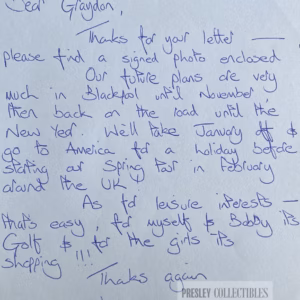 Dear Graydon,
Thanks for your letter —
please find a signed photo enclosed
Our future plans are very
much in Blackpool until November,
then back on the road until the
New Year. We'll take January off &
go to America for a holiday before
starting our Spring Tour in February
around the UK.
As for leisure interests —
that's easy, for myself & Bobby it's
Golf & for the girls it's
shopping !!!
Thanks again
PRESLEY COLLECTIBLES